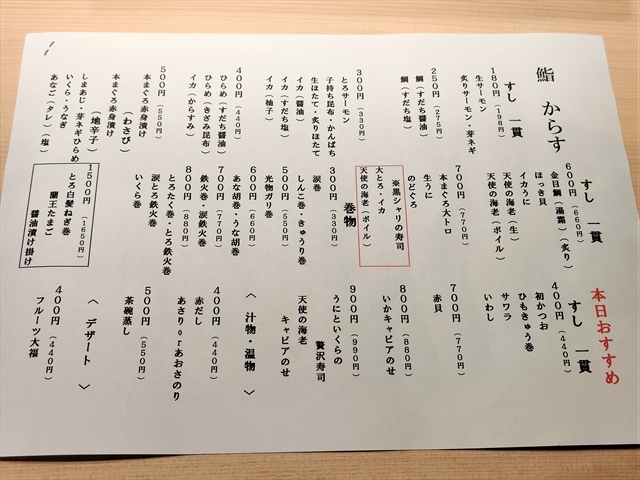 鮨 からす
すし 一貫
180円(198円)
生サーモン
炙りサーモン・芽ネギ
250円(275円)
鯛(すだち醤油)
鯛(すだち塩)
300円(330円)
とろサーモン
子持ち昆布・かんぱち
生ほたて・炙りほたて
イカ(醤油)
イカ(すだち塩)
イカ(柚子)
400円(440円)
ひらめ(すだち醤油)
ひらめ(きざみ昆布)
イカ(からすみ)
500円(550円)
本まぐろ赤身漬け
(わさび)
本まぐろ赤身漬け
(地辛子)
しまあじ・芽ネギひらめ
いくら・うなぎ
あなご(タレ)(塩)
すし 一貫
600円(660円)
金目鯛(湯霜)(炙り)
ほっき貝
イカうに
天使の海老(生)
天使の海老(ボイル)
700円(770円)
本まぐろ大トロ
生うに
のどぐろ
※黒シャリの寿司
大とろ・イカ
天使の海老(ボイル)
巻物
300円(330円)
涙巻
しんこ巻・きゅうり巻
500円(550円)
光物ガリ巻
600円(660円)
あな胡巻・うな胡巻
700円(770円)
鉄火巻・涙鉄火巻
800円(880円)
とろたく巻・とろ鉄火巻
涙とろ鉄火巻
いくら巻
1500円(1650円)
とろ白髪ねぎ巻
蘭王たまご
醤油漬け掛け
本日おすすめ
すし 一貫
400円(440円)
初かつお
ひもきゅう巻
サワラ
いわし
700円(770円)
赤貝
800円(880円)
いかキャビアのせ
900円(990円)
うにといくらの
贅沢寿司
天使の海老
キャビアのせ
〈 汁物・温物 〉
400円(440円)
赤だし
あさりorあおさのり
500円(550円)
茶碗蒸し
〈 デザート 〉
400円(440円)
フルーツ大福